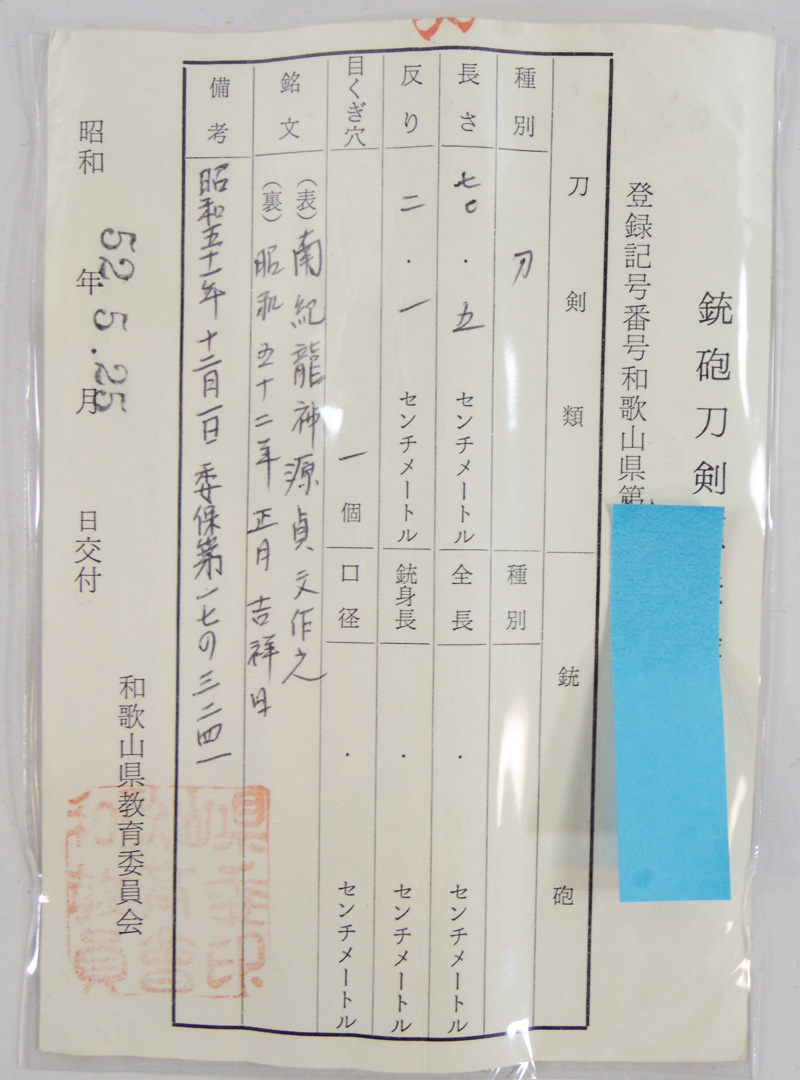 銃砲刀剣
登録記号番号和歌山県第
刀剣類
銃砲
種別 刀
種別
長さ 七〇・五 センチメートル
全長 ・ センチメートル
反り 二・一 センチメートル
銃身長 ・ センチメートル
目くぎ穴 一 個
口径 ・ センチメートル
銘文 (表) 南紀龍神源貞文作之
(裏) 昭和五十二年正月吉祥日
備考 昭和五十一年十二月一日委保第一七の三二四一
昭和 年 月 日交付
52.5.25
和歌山県教育委員会